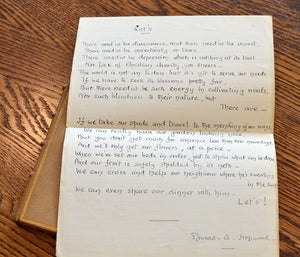 Let's
There need not be discussions, and there need not be unrest,
There need not be uncertainty or fears.
There need not be depression which is sobbing at its best
Nor lack of Christian charity, nor sneers.
The world is not an Eden but it's got to serve our needs
If we have to seek its blossoms pretty far.
But there needn't be such energy in cultivating weeds,
Nor such blindness to their nature, but
There are —
If we take our spade and trowel to the mending of our ways
We can really have our garden looking nice.
But you don't get much for nuppence less than four nowadays
And we'll only get our flowers, at a price —
When we've set our beds in order, just to show what can be done
And our fruit is safely shielded by its nets —
We can cross and help our neighbour where he's sweating
in the sun
We can even share our dinner with him —
Let's!
A.